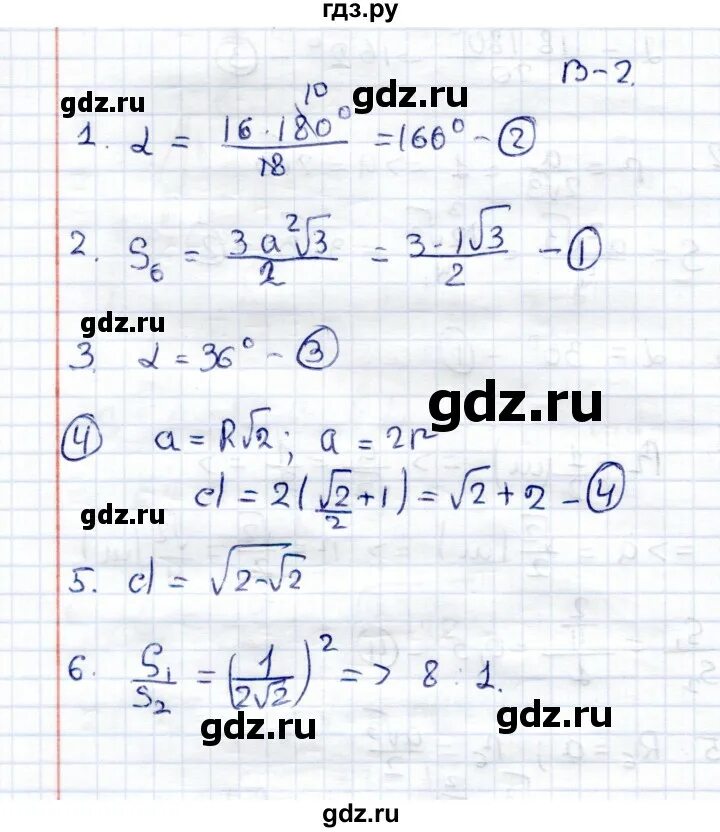 гдз.ру
В-2.
gdz.ru gdz.ru
1. α = 16·180° 10 / 18 = 160° - ②
2. S₆ = 3a²√3 / 2 = 3·1√3 / 2 - ①
gdz.ru
3. α = 36° - ③
gdz.ru
④ a = R√2; a = 2r
d = 2(√2/2 + 1) = √2 + 2 - ④
gdz.ru
5. d = √(2-√2)
6. S₁/S₂ = (1/2√2)² => 8 : 1.
gdz.ru gdz.ru
gdz.ru